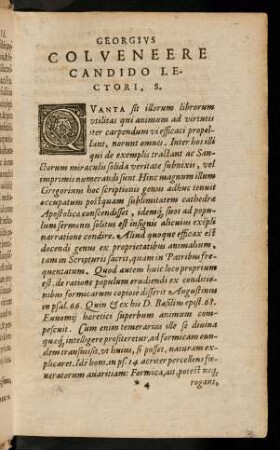 GEORGIVS
COLVENEERE
CANDIDO LE-
CTORI, S.
QVANTA sit illorum librorum
vtilitas qui animum ad virtutis
iter carpendum vi efficaci propel-
lant, norunt omnes. Inter hos illi
qui de exemplis tractant ac San-
ctorum miraculis solida veritate subnixis, vel
imprimis numerandi sunt. Hinc magnum illum
Gregorium hoc scriptionis genus adhuc tenuit
occupatum postquam sublimitatem cathedræ
Apostolicæ conscendisset, idemq́; suos ad popu-
lum sermones solitus est insigni alicuius exepli
narratione condire. Aliud quoque efficax est do-
cendi genus ex proprietatibus animalium,
tam in Scripturis sacris, quam in Patribus fre-
quentatum. Quod autem huic loco proprium
est, de ratione populum erudiendi ex conditio-
nibus formicarum copiose disserit Augustinus
in psal. 66. Quin & ex his D. Basilius epist. 68.
Eunomij hæretici superbum animum com-
pescuit. Cum enim temerarius ille se diuina
quæq́; intelligere profiteretur, ad formicam eun-
dem transmisit, vt huius, si posset, naturam ex-
plicaret. Idē hom. in ps. 14 acriter percellens fœ-
neratorum auaritiam: Formica, ait, potest neq;
* 4
rogans,